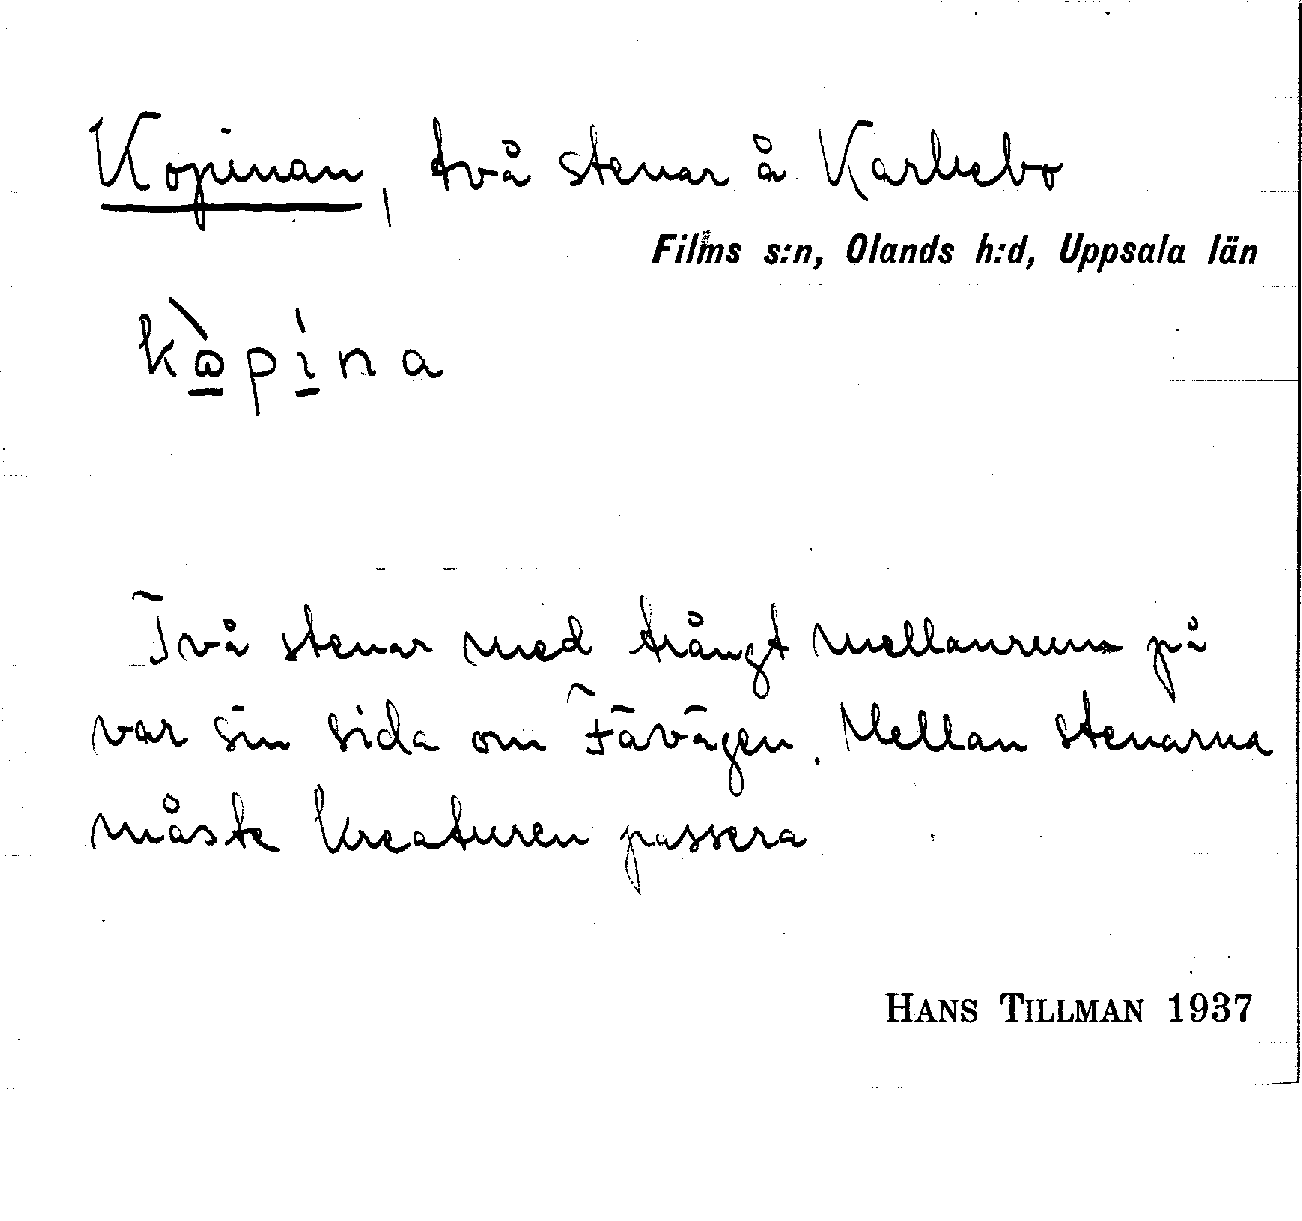 Kopinan, två stenar å Karlsebo
Films s:n, Olands h:d, Uppsala län
kòpína
Två stenar med trångt mellanrum på
var sin sida om Fävägen. Mellan stenarna
måste kreaturen passera
HANS TILLMAN 1937